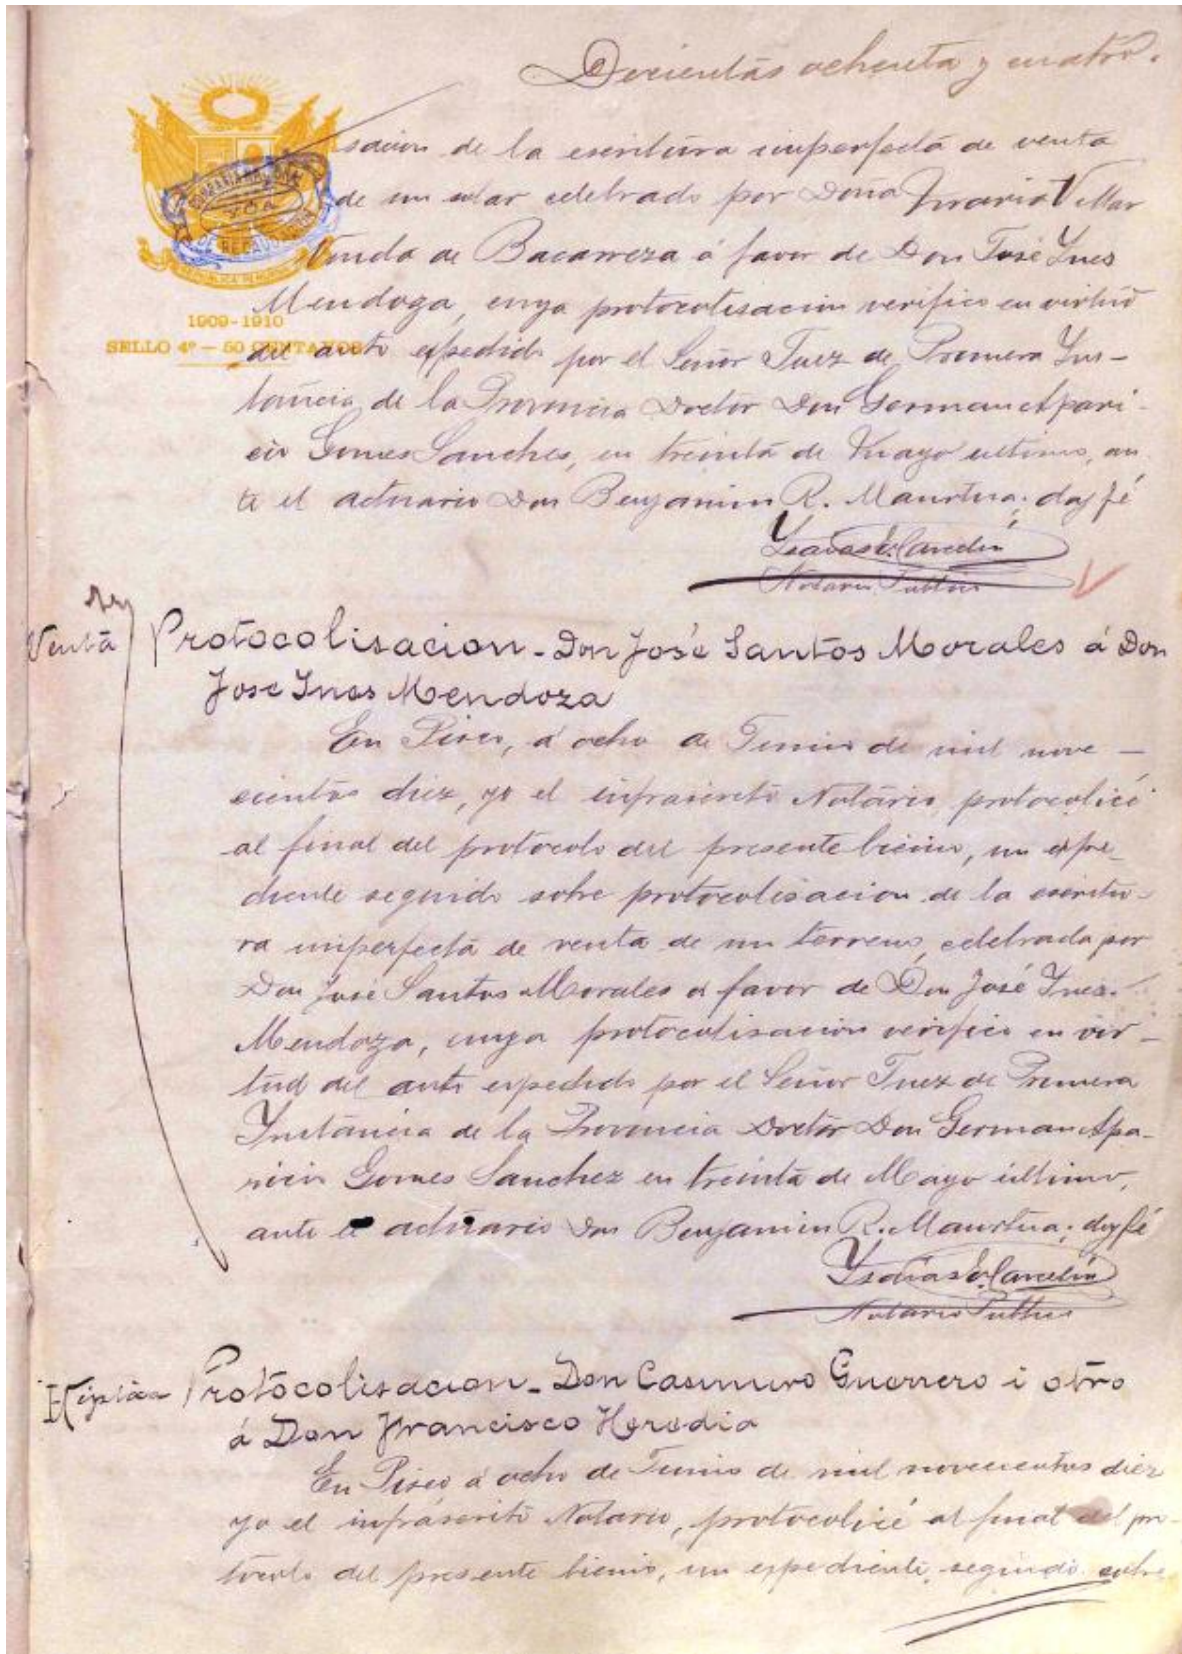 Docientas ochenta y cuatro.
sacion de la escritura imperfecta de venta
de un solar celebrado por Doña Maria Villar
viuda de Bacarreza á favor de Don José Ynes
Mendoza, cuya protocolisacion verifico en virtud
1909-1910
SELLO 4º — 50 CENTAVOS
del auto expedido por el Señor Juez de Primera Yns-
tancia de la Provincia Doctor Don German Apari-
cio Gomes Sanches, en treinta de Mayo ultimo, an
te el actuario Don Benjamin R. Maurtua; doy fé
Notario Publico
Venta
Protocolisacion - Don José Santos Morales á Don
Jose Ines Mendoza
En Pisco, á ocho de Junio de mil nove —
cientos diez, yo el infrascrito Notario, protocolicé
al final del protocolo del presente bienio, un espe-
diente seguido sobre protocolisacion de la escritu-
ra imperfecta de venta de un terreno, celebrada por
Don José Santos Morales á favor de Don José Ynes
Mendoza, cuya protocolisacion verifico en vir-
tud del auto expedido por el Señor Juez de Primera
Ynstancia de la Provincia Doctor Don German Apa-
ricio Gomes Sanchez en treinta de Mayo último,
ante el actuario Don Benjamin R. Maurtua; doy fé
Notario Publico
Protocolisacion - Don Casimiro Guerrero i otro
á Don Francisco Heredia
En Pisco á ocho de Junio de mil novecientos diez
yo el infrascrito Notario, protocolicé al final del pro-
tocolo del presente bienio, un espediente, seguido sobre